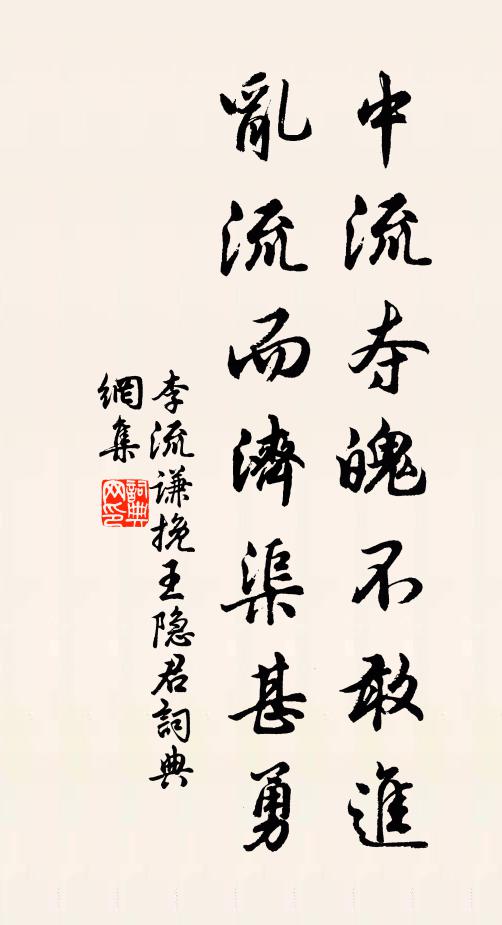 中流夺魄不敢進
亂流而濟渠甚勇
李流謙挽王隐君詞典
網集
詞典網印